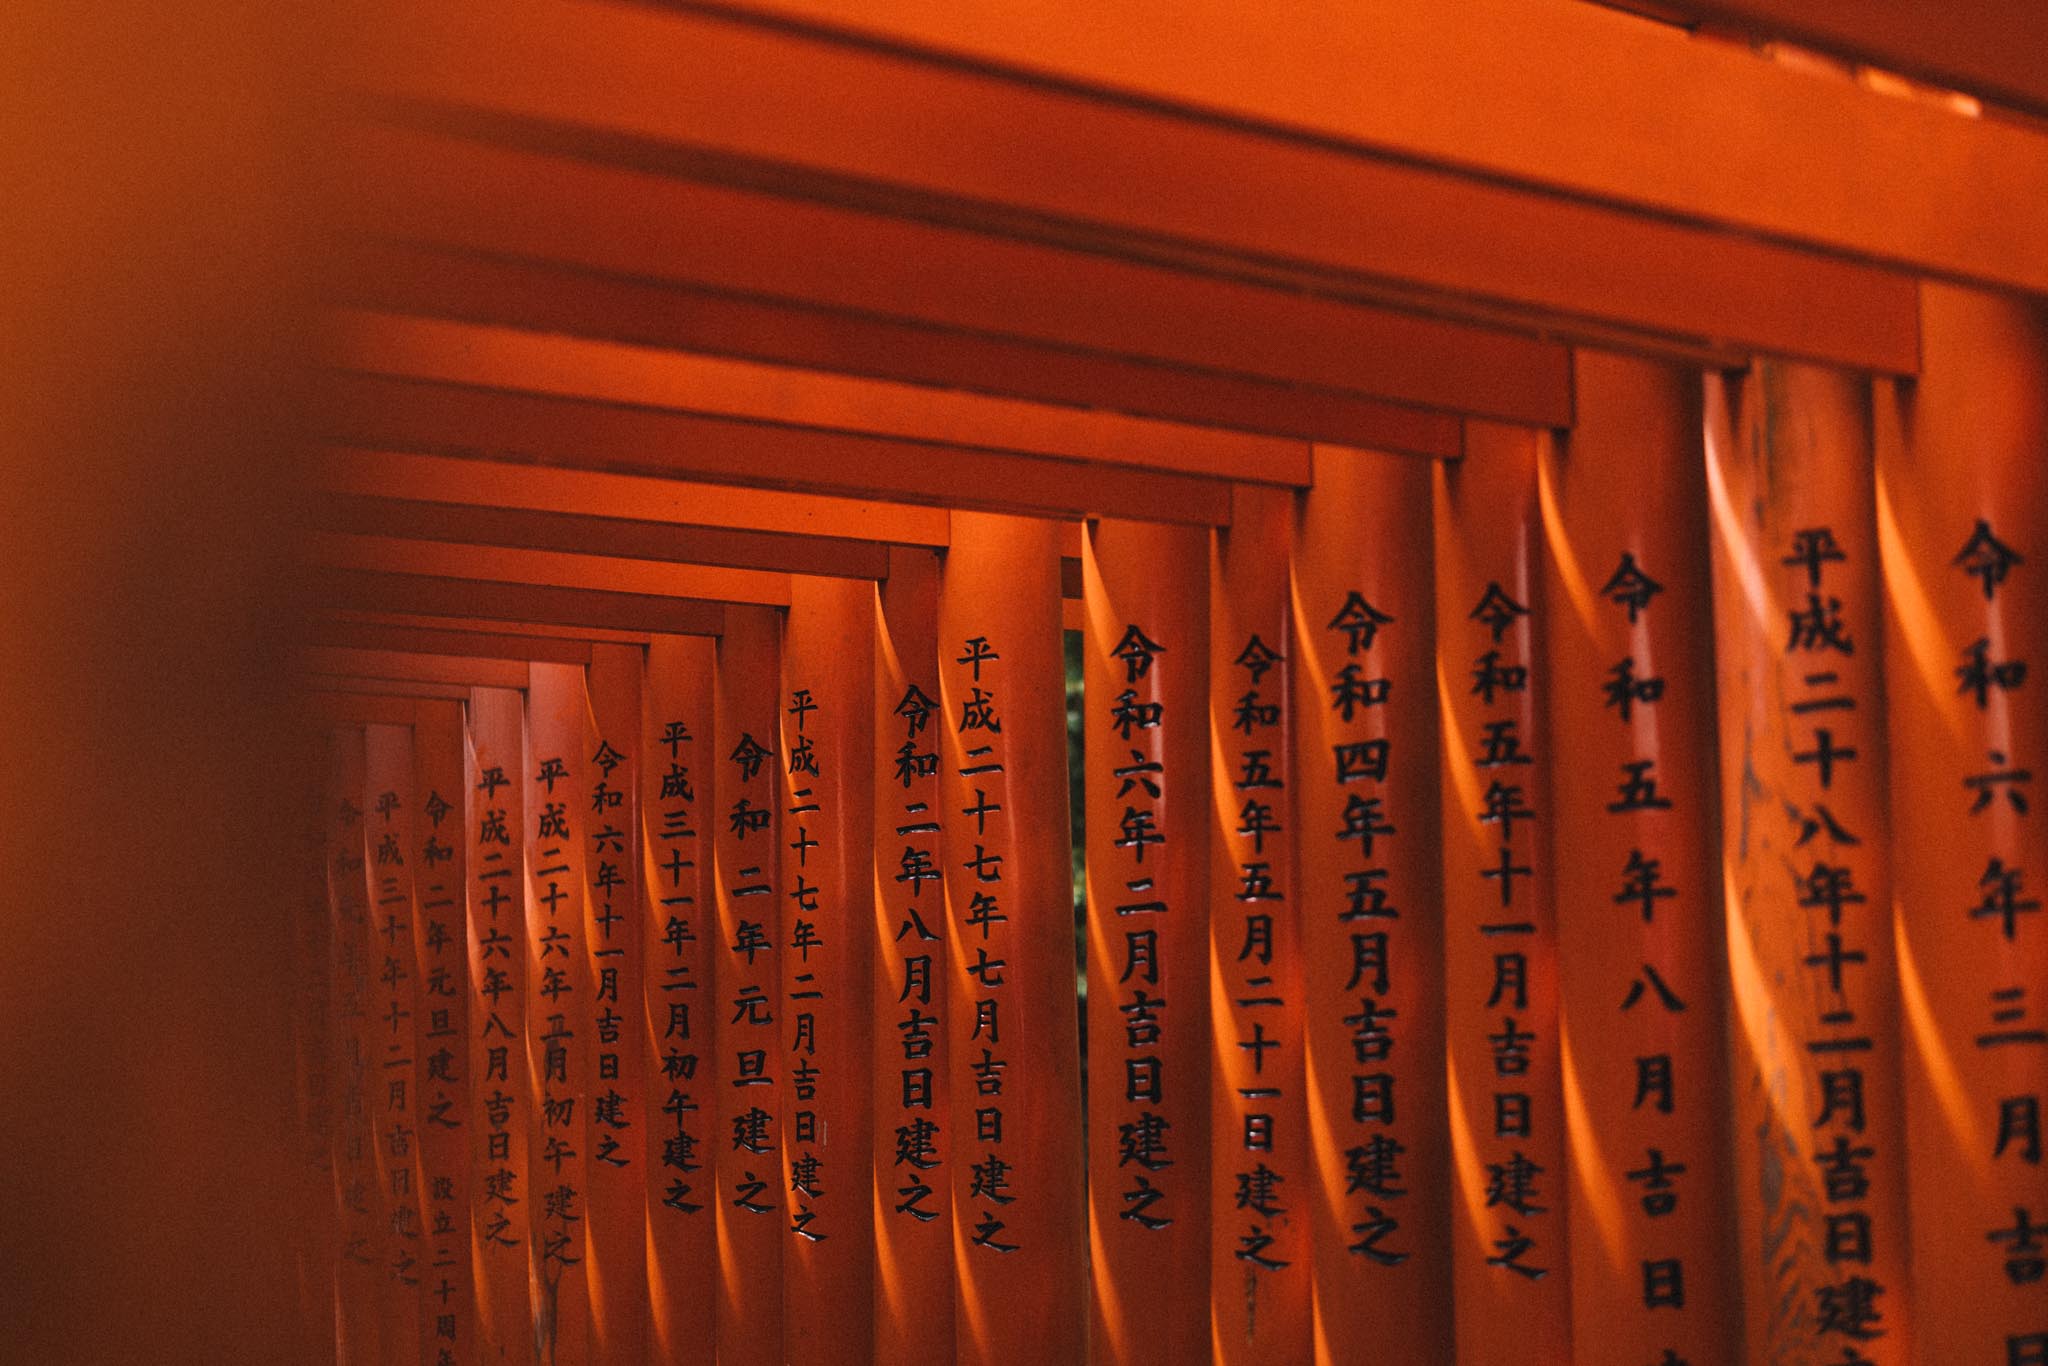 令和六年三月吉日
平成二十八年十二月吉日建之
令和五年八月吉日
令和五年十一月吉日建之
令和四年五月吉日建之
令和五年五月二十一日建之
令和六年二月吉日建之
平成二十七年七月吉日建之
令和二年八月吉日建之
平成二十七年二月吉日建之
令和二年元旦建之
平成三十一年二月初午建之
令和六年十一月吉日建之
平成二十六年五月初午建之
平成二十六年八月吉日建之
令和二年元旦建之 設立二十周年
平成三十年十二月吉日建之
令和元年五月吉日建之